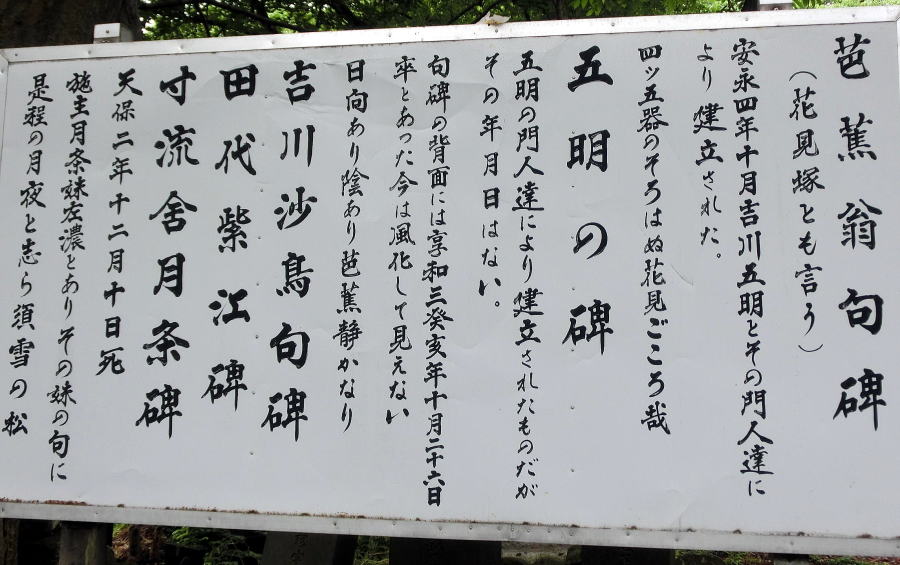 芭蕉翁句碑
（花見塚とも言う）
安永四年十月吉川五明とその門人達に
より建立された。
四ッ五器のそろはぬ花見ごころ哉
五明の碑
五明の門人達により建立されたものだが
その年月日はない。
句碑の背面には享和三癸亥年十月二十六日
卒とあった今は風化して見えない
日向あり陰あり芭蕉静かなり
吉川沙鳥句碑
田代紫江碑
寸流舎月条碑
天保二年十二月十日死
施主月条妹左濃とありその妹の句に
是程の月夜と志ら須雪の松